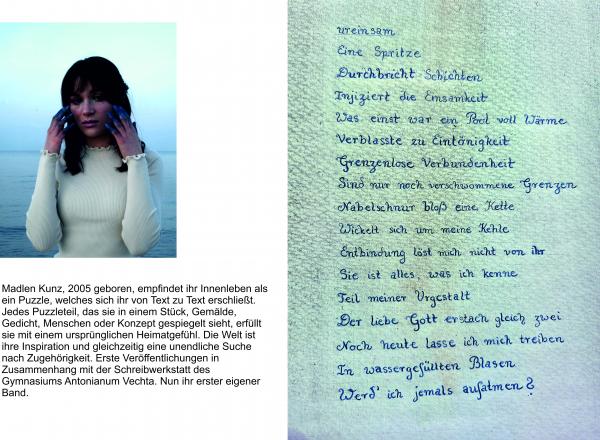 Madlen Kunz, 2005 geboren, empfindet ihr Innenleben als
ein Puzzle, welches sich ihr von Text zu Text erschließt.
Jedes Puzzleteil, das sie in einem Stück, Gemälde,
Gedicht, Menschen oder Konzept gespiegelt sieht, erfüllt
sie mit einem ursprünglichen Heimatgefühl. Die Welt ist
ihre Inspiration und gleichzeitig eine unendliche Suche
nach Zugehörigkeit. Erste Veröffentlichungen in
Zusammenhang mit der Schreibwerkstatt des
Gymnasiums Antonianum Vechta. Nun ihr erster eigener
Band.
ureinsam
Eine Spritze
Durchbricht Schichten
Injiziert die Einsamkeit
Was einst war ein Pool voll Wärme
Verblasste zu Eintönigkeit
Grenzenlose Verbundenheit
Sind nur noch verschwommene Grenzen
Nabelschnur bloß eine Kette
Wickelt sich um meine Kehle
Entbindung löst mich nicht von ihr
Sie ist alles, was ich kenne
Teil meiner Urgestalt
Der liebe Gott erstach gleich zwei
Noch heute lasse ich mich treiben
In wassergefüllten Blasen
Werd' ich jemals aufatmen?